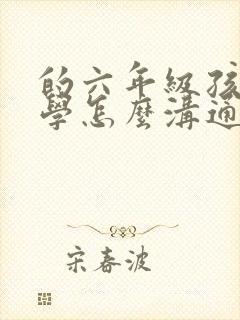 的六年級孩
學怎麼溝通
宋春波